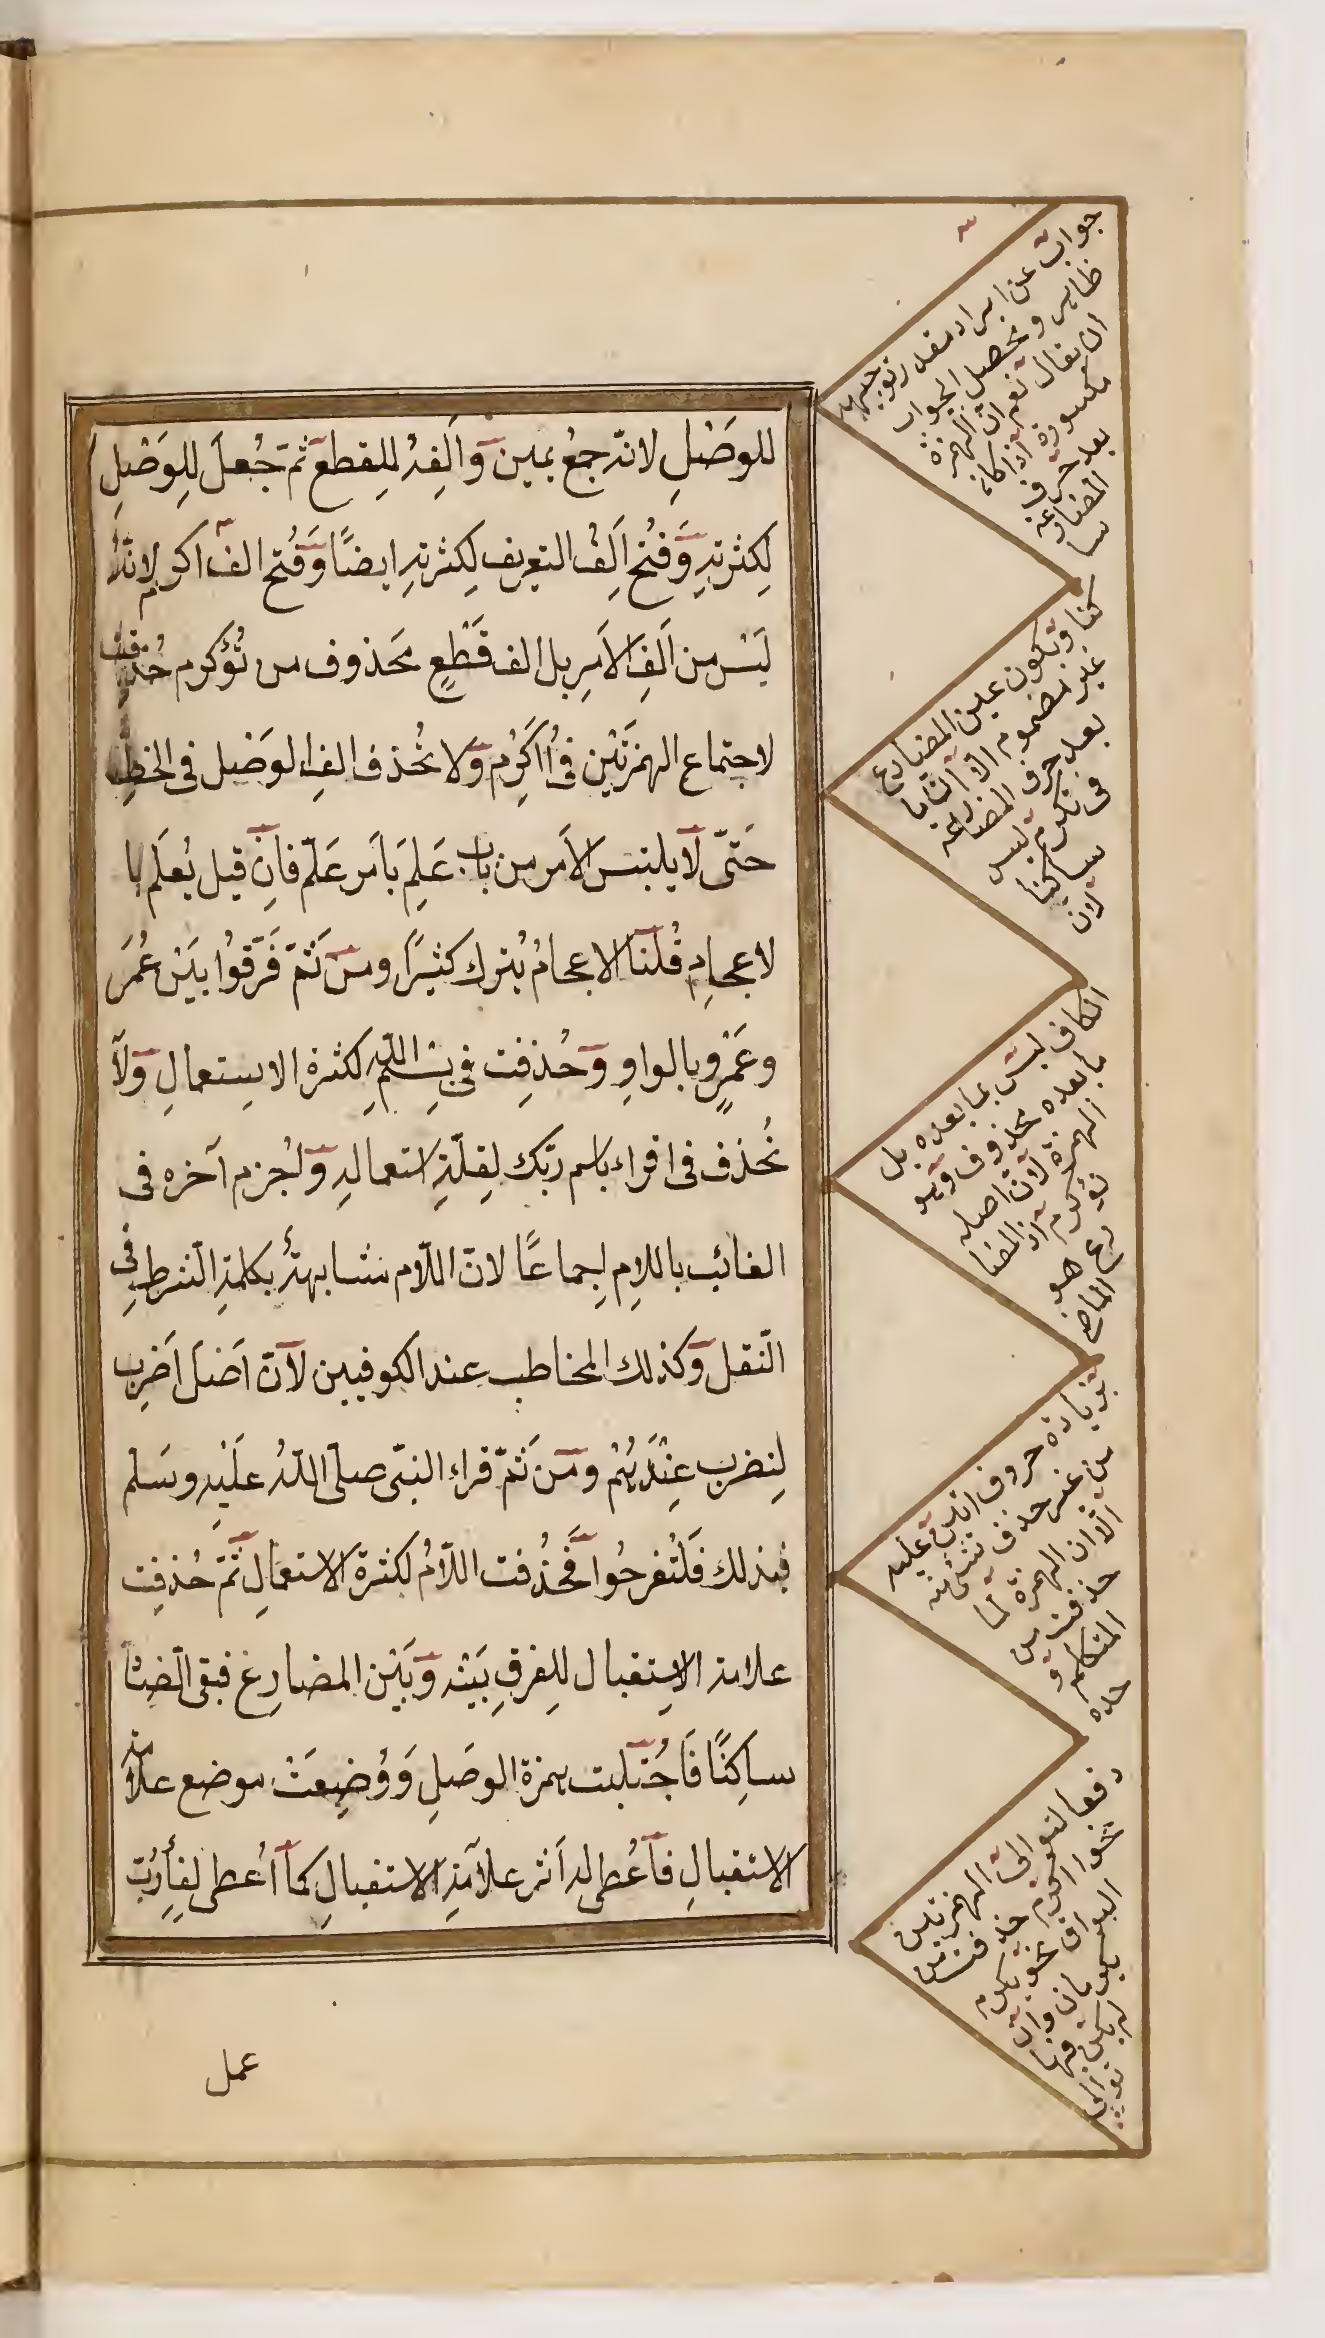 للوصْلِ لانّه جمعُ يمين وَاَلِفُه لِلقطع ثمّ جُعلَ لِلوَصْلِ
لِكثرتِهِ وَفُتح اَلِفُ التعريف لِكثرتِهِ ايضًا وَفُتح الف اكرم لانّهُ
لَيْسَ من اَلفِ الاَمرِ بل الف قَطْعٍ محَذوف من تُؤَكرم حُذفت
لاجتماع الهمزَتَيْن فى أُاَكْرِم وَلا تُحذف الف الوَصْل فى الخطِ
حَتّى لا يلتبسَ الاَمر من باب عَلِمَ بأمر عَلّم فاِن قيل يُعلَم با
لاعجامِ قُلنا الاعجامُ يُترك كثيرًا ومن ثَمّ فَرّقوُا بَيْن عُمَرَ
وعَمْرٍو بالواوِ وَحُذفِت فى بِسْمِ اللّهِ لِكثرة الاستعمالِ وَلا
تُحذف فى اقراء باسم ربّك لِقلّةِ استعمالِهِ وَلجُزم آخره فى
الغائب باللامِ اِجماعًا لانّ اللّام مشابهةٌ بكلمةِ الشرطِ فى
النّقل وَكذلك المخاطب عند الكوفيين لاَنّ اَصْلَ اضَرِب
لِتضرب عِنْدَهُمْ ومن ثَمّ قراء النبى صلّى اللّهُ عَلَيْهِ وسَلم
فبذلك فَلتُفرحُوا فَحُذفت اللّامُ لكثرة الاستعمالِ ثُمّ حُذفِت
علامة الاِستقبال لِلفرقِ بَيْنه وَبَيْن المضارِع فبقى الضّاد
ساكِنًا فَاجْتلبت همزة الوصَلِ وَوُضِعَتْ موضع علامة
الاستقبالِ فاُعطى له اَثر علامَةِ الاستقبالِ كما اُعطى لِفاءِ رُبّ
عمل
جواب عن ايراد مقدر توجيهه
ظاهر ومحصل الجواب
ان يقال نعم ان الهمزة
مكسورة اذا كان
بعد حرف
المضارعة
سا
كنا ويكون عين المضارع
غير مضموم الا ان ما
بعد حرف المضارعة
فى تكرم ليس
ساكنا
لان
الكاف ليس بما بعده بل
ما بعده محذوف وهو
الهمزة لان اصله
تؤكرم اذ المضا
رع هو
الماضى
بزيادة حروف اتين عليه
من غير حذف شئ منه
الا ان الهمزة لما
حذفت من
المتكلم و
حده
دفعا لتوالى الهمزتين
نحو ااكرم حذفت من
البواقى نحو يكرم
تكرمان وان
لم يكن فيها
توالى